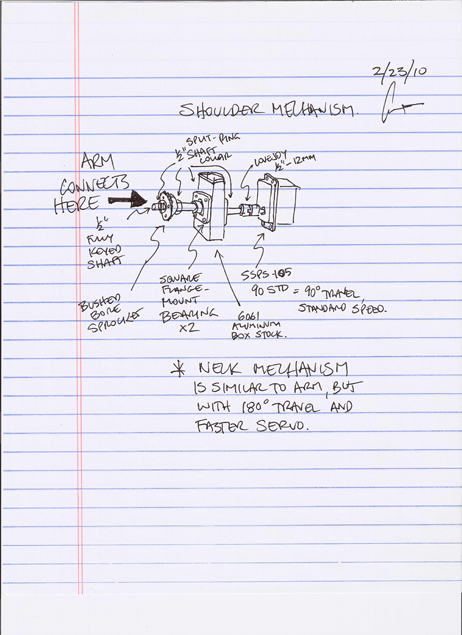 2/23/10
SHOULDER MECHANISM.
SPLIT-RING
1/2" SHAFT
COLLAR
LOVEJOY
1/2"-12MM
ARM
CONNECTS
HERE
1/2"
FULLY
KEYED
SHAFT
BUSHED
BORE
SPROCKET
SQUARE
FLANGE-
MOUNT
BEARING
X2
6061
ALUMINUM
BOX STOCK.
SSPS-105
90 STD = 90° TRAVEL
STANDARD SPEED.
* NECK MECHANISM
IS SIMILAR TO ARM, BUT
WITH 180° TRAVEL AND
FASTER SERVO.